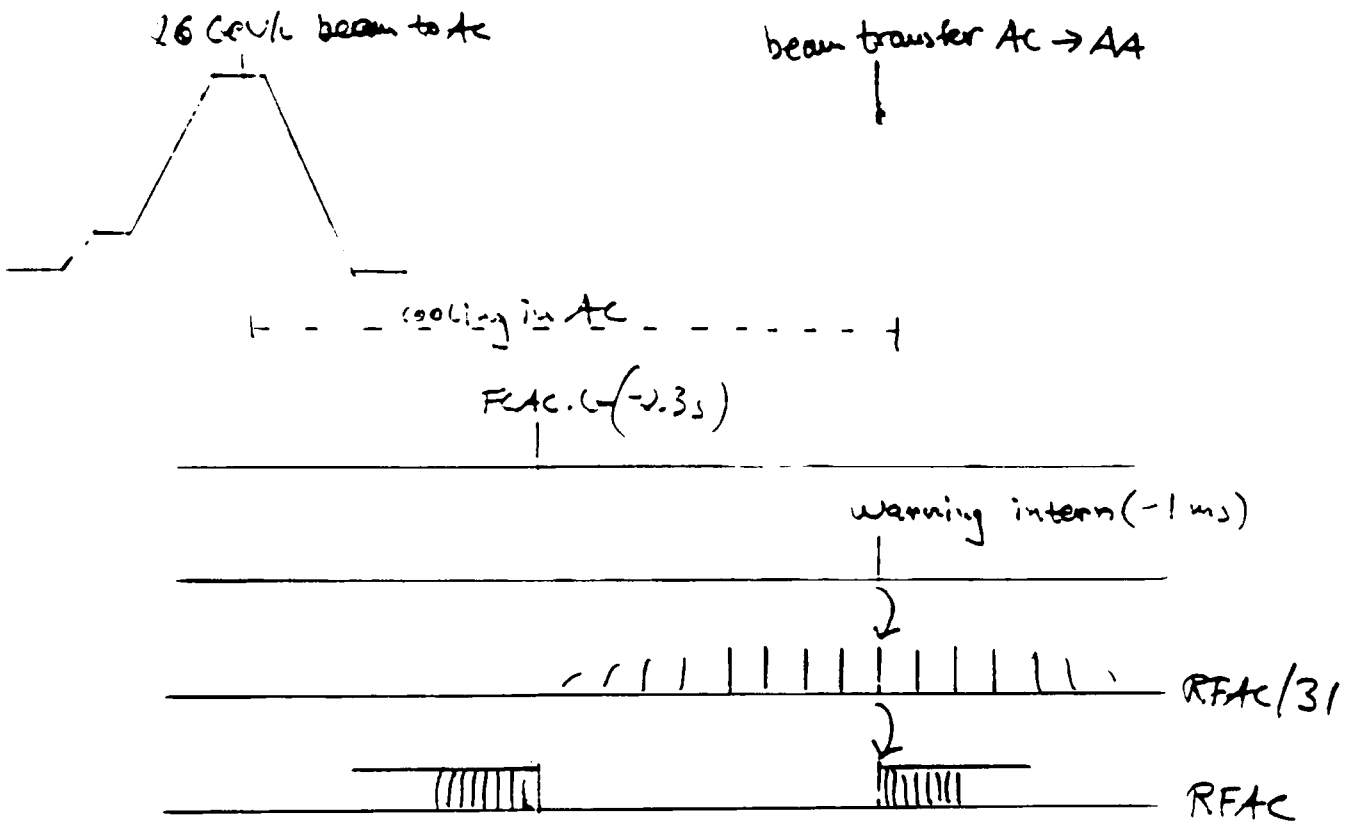 26 GeV/c beam to AC
beam transfer AC → AA
cooling in AC
(-2.3s)
Warning intern (-1 ms)
RFAC/31
RFAC